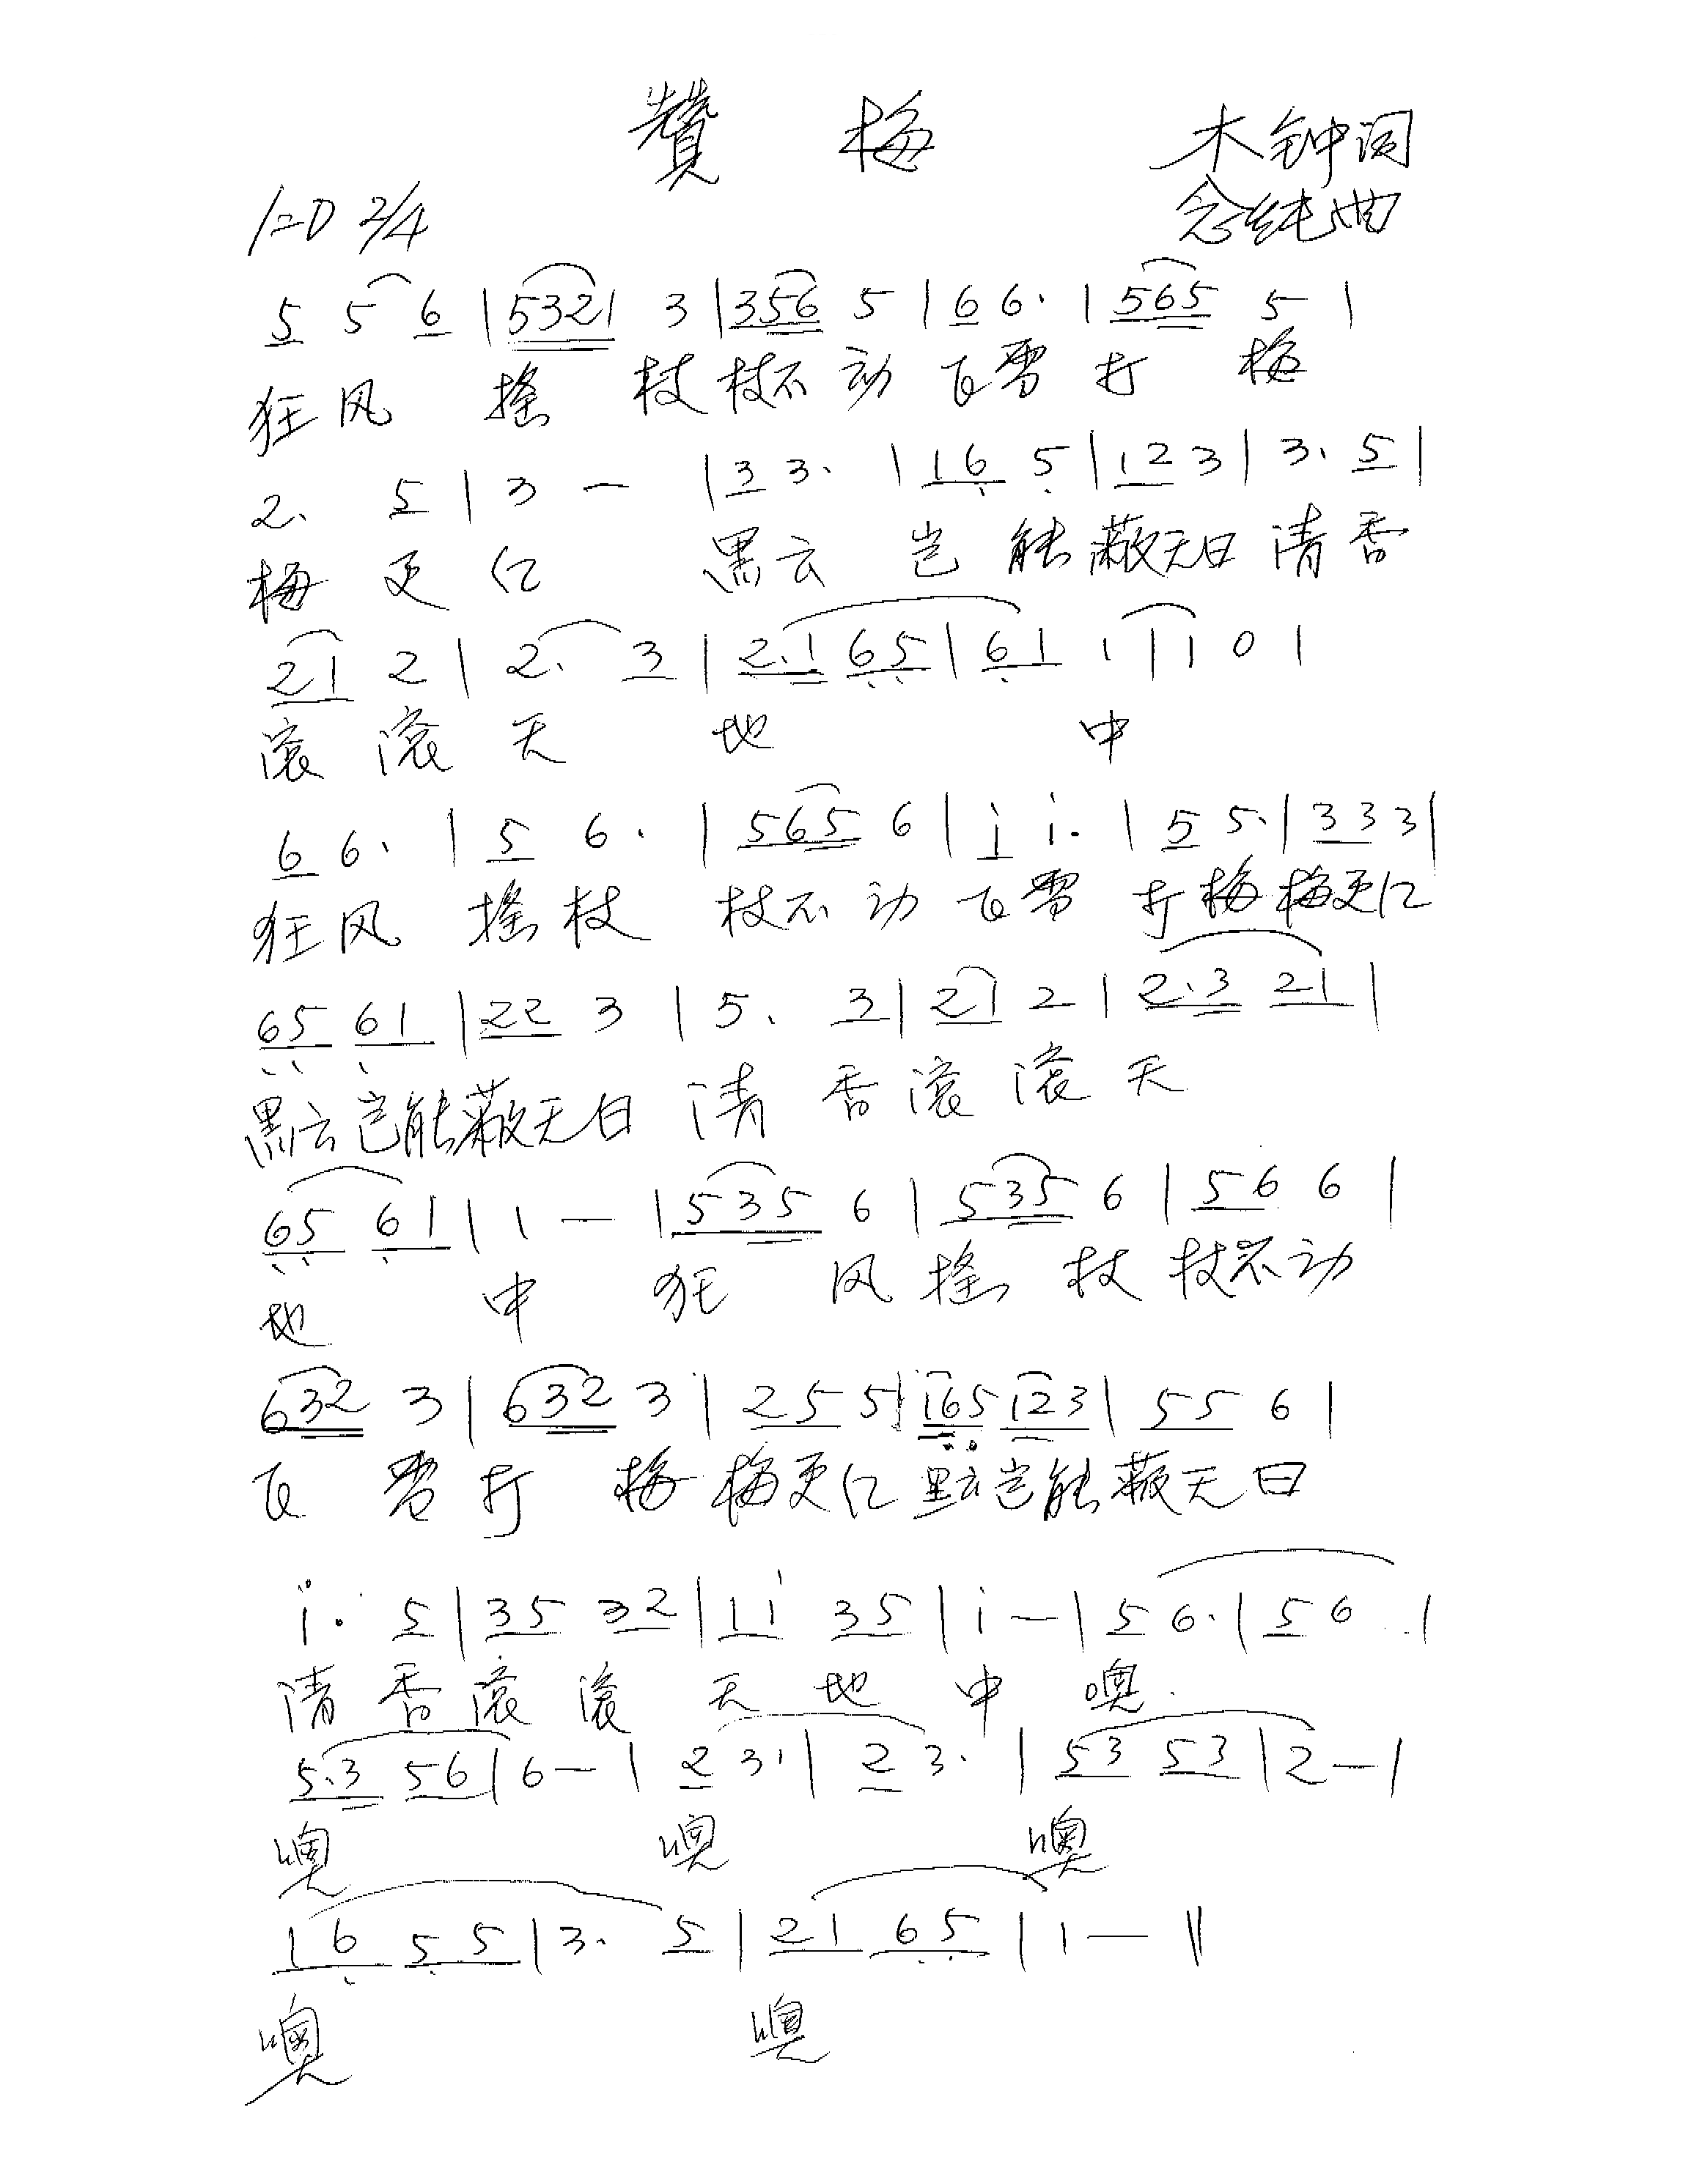 贊 梅
木钟词
1=D 2/4
念纯曲
5 5 6 | 5321 3 | 356 5 | 6 6· | 565 5 |
狂风 摇 枝枝不动 飞雪 打 梅
2· 5 | 3 - | 3 3· | 16 5 | 12 3 | 3· 5 |
梅 更 红 黑云 岂 能蔽天日 清香
21 2 | 2· 3 | 2·1 65 | 61 1 | 1 0 |
滚 滚 天 地 中
6 6· | 5 6· | 565 6 | i i· | 5 5· | 33 3 |
狂风 摇枝 枝不动 飞雪 打梅 梅更红
65 61 | 22 3 | 5· 3 | 21 2 | 2·3 21 |
黑云岂能蔽天日 清 香 滚 滚 天
65 61 | 1 - | 535 6 | 535 6 | 56 6 |
地 中 狂 风 摇 枝 枝不动
632 3 | 632 3 | 25 5 | 165 123 | 55 6 |
飞 雪 打 梅 梅更红 黑云岂能蔽天日
i· 5 | 35 32 | 1i 35 | i - | 5 6· | 5 6· |
清 香 滚 滚 天 地 中 噢
5·3 56 | 6 - | 2 3· | 2 3· | 53 53 | 2 - |
噢 噢 噢
16 55 | 3· 5 | 21 65 | 1 - ‖
噢 噢